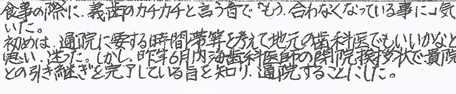 食事の際に、義歯のカチカチと言う音で、もう合わなくなっている事に気
いた。
初めは、通院に要する時間帯等を考えて地元の歯科医でもいいかなと
思い、迷った。しかし、昨年6月内海歯科医師の閉院挨拶状で貴院
との引き継ぎを完了している旨を知り、通院することにした。